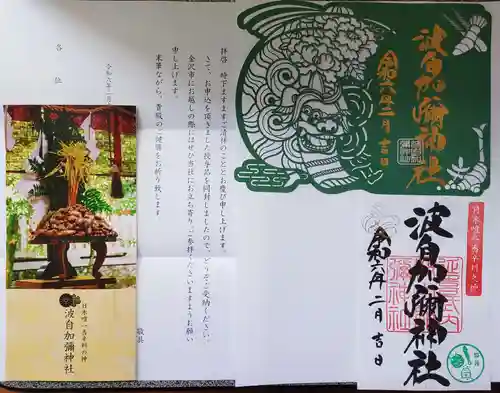 各位
令和六年二月
拝啓 時下ますますご清祥のこととお慶び申し上げます。
さて、お申込を頂きました授与品を同封しましたので、どうぞご受納ください。
金沢市にお越しの際にはぜひ当社にお立ち寄り、ご参拝くださいますようお願い
申し上げます。
末筆ながら、貴殿のご健勝をお祈り致します
敬具
日本唯一香辛料の神
波自加彌神社
波自加彌神社
令和六年二月吉日
日本唯一香辛料の神
波自加彌神社
令和六年二月吉日